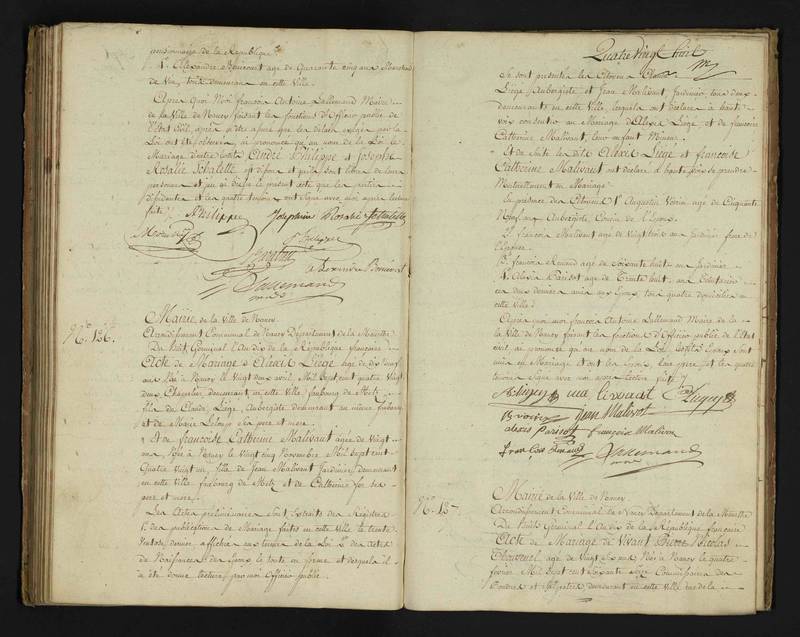 pensionnaire de la République
4°. Alexandre Bonicourt agé de Quarante cinq ans Marchand
de Vin, tous demeurans en cette Ville.
Après Quoi Moi françois Antoine Lallemand Maire
de la Ville de Nancy faisant les fonctions d'Officier public de
l'Etat Civil, après que les délais exigés par la
Loi ont été, a prononcé qu'au nom de la Loi le
Mariage d'entre André Philippe et Josephe
Rosalie sont libres de leur
personne et j'ai rédigé le present acte que les parties
et les quatre témoins ont Signé avec moi après lecture
faite.
APhilippe Josephine Rosalie
Philippe
Alexandre Bonicourt
Lallemand
N°. 126.
Mairie de la Ville de Nancy.
Arrondissement Communal de Nancy Département de la Meurthe
Du huit Germinal l'An dix de la République française
Acte de Mariage d'Alexis Liégé agé de dix neuf
ans Né à Nancy le Vingt deux avril Mil Sept cent quatre Vingt
deux, demeurant en cette Ville faubourg de Metz
fils de Claude Liégé Aubergiste demeurant au même faubourg
et de Marie Leloup ses pere et mere.
Et de françoise Catherine Malivaut agée de Vingt
ans, Née à Nancy le Vingt cinq Novembre Mil Sept cent
Quatre Vingt un, fille de Jean Malivaut Jardinier, demeurant
en cette Ville faubourg de Metz et de Catherine ses
pere et mere.
Les Actes préliminaires sont Extraits des Registres
1°. des publications de Mariage faites en cette Ville le trente
Ventose dernier affichée aux termes de la Loi 2°. des actes
de Naissances des Epoux le tout en forme et desquels il
a été donné lecture par moi Officier public.
Quatre Vingt huit
Se sont présentés les Citoyens Claude
Liégé Aubergiste et Jean Malivaut, Jardinier, tous deux
demeurans en cette Ville, lesquels ont déclaré à haute
voix consentir au Mariage d'Alexis Liégé et de françoise
Catherine Malivaut, leurs enfans Mineurs.
Et de Suite les dits Alexis Liégé et françoise
Catherine Malivaut ont déclaré à haute voix se prendre
Mutuellement en Mariage.
En presence des Citoyens 1°. Augustin Voirin agé de Cinquante
Neuf ans, Aubergiste, Cousin de l'Epoux.
2°. françois Malivaut agé de Vingt trois ans Jardinier frere de
l'Epouse.
3°. françois Renard agé de Soixante huit ans Jardinier
4°. Alexis Parisot agé de Trente huit ans
ces deux derniers amis aux Epoux, tous quatre domiciliés en
cette Ville.
Après quoi moi françois Antoine Lallemand Maire de
la Ville de Nancy faisant les fonctions d'Officier public de l'Etat
civil, ai prononcé qu'au nom de la Loi lesdits Epoux sont
unis en Mariage et ont les Epoux, leurs peres et les quatre
témoins Signé avec moi après Lecture faite.
Jean Malivot
alexis Parisot françois Malivau
françois Renard Lallemand
N°. 127.
Mairie de la Ville de Nancy
Arrondissement Communal de Nancy Département de la Meurthe
Du huit Germinal l'An dix de la République française
Acte de Mariage de Vivant Pierre Nicolas
agé de Vingt Six ans Né à Nancy le quatre
février Mil Sept cent Soixante Seize Commissaire des
Poudres et Salpetres, demeurant en cette Ville rue de la